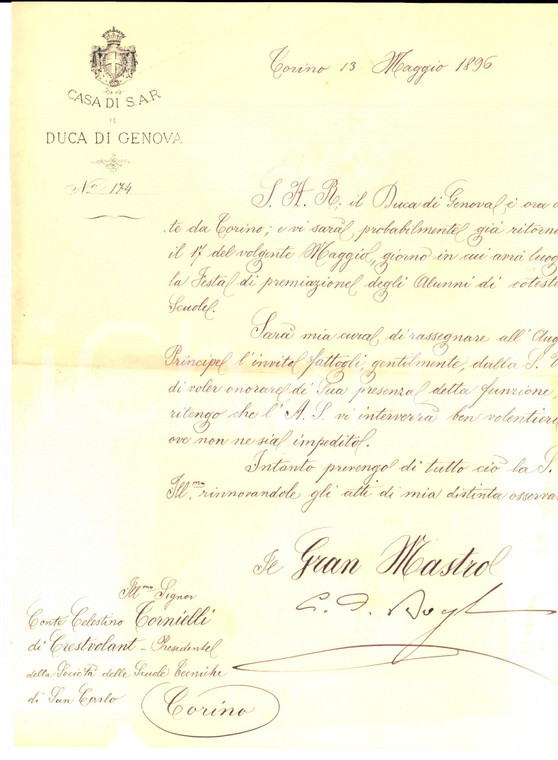 CASA DI S.A.R.
IL
DUCA DI GENOVA
N.º 174
Torino 13 Maggio 1896
S. A. R. il Duca di Genova è ora a
te da Torino; e vi sarà probabilmente già ritorn
il 17 del volgente Maggio, giorno in cui avrà luog
la Festa di premiazione degli Alunni di cotest
Scuole.
Sarà mia cura di rassegnare all'Aug
Principe l'invito fattogli gentilmente dalla S. V
di voler onorare di Sua presenza detta funzione,
ritengo che l'A. S. vi interverrà ben volentier
ove non ne sia impedito.
Intanto prevengo di tutto ciò la S.
Ill.ma rinnovandole gli atti di mia distinta osserva
Il Gran Mastro
Ill.mo Signor
Conte Celestino Cornielli
di Crestvolant - Presidente
della Società delle Scuole Tecniche
di San Carlo
Torino